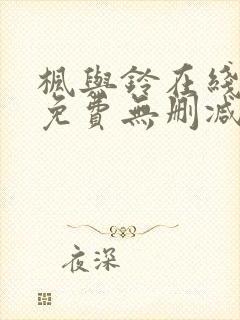 楓與鈴在綫
免費無刪減
夜深